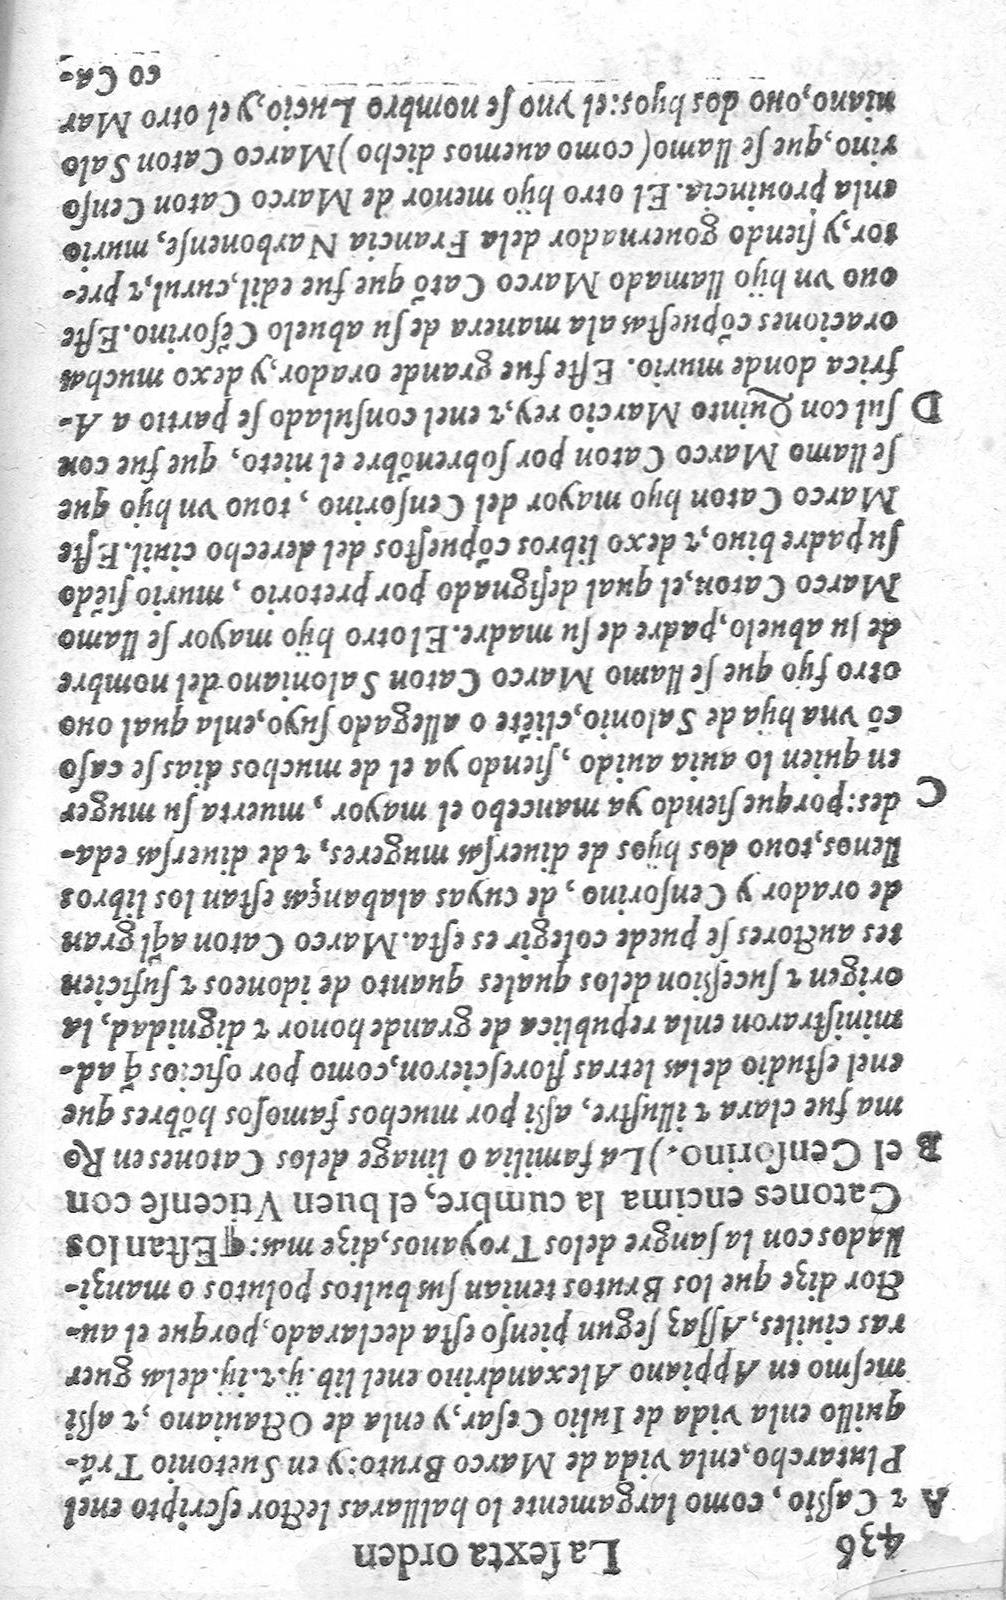 436 La sexta orden
A τ Caßio, como largamente lo hallaras lector escripto enel
Plutarcho, enla vida de Marco Bruto: y en Suetonio Trã-
quillo enla vida de Iulio Cesar, y enla de Octauiano, τ assi
mesmo en Appiano Alexandrino enel lib. ij. τ. iij. delas guer
ras ciuiles, Assaz segun pienso esta declarado, porque el au-
ctor dize que los Brutos tenian sus bultos polutos o manzi-
llados con la sangre delos Troyanos, dize mas: ¶ Estan los
Catones encima la cumbre, el buen Vticense con
B el Censorino.) La familia o linage delos Catones en Ro
ma fue clara τ illustre, aßi por muchos famosos hõbres que
enel estudio delas letras florescieron, como por oficios q̃ ad-
ministraron enla republica de grande honor τ dignidad, la
origen τ sucession delos quales quanto de idoneos τ suficien
tes auctores se puede colegir es esta. Marco Caton aq̃l gran
de orador y Censorino, de cuyas alabanças estan los libros
llenos, touo dos hijos de diuersas mugeres, τ de diuersas eda-
C des: porque siendo ya mancebo el mayor, muerta su muger
en quien lo auia auido, siendo ya el de muchos dias se caso
cõ vna hija de Salonio, cliẽte o allegado suyo, enla qual ouo
otro fijo que se llamo Marco Caton Saloniano del nombre
de su abuelo, padre de su madre. El otro hijo mayor se llamo
Marco Caton, el qual designado por pretorio, murio siẽdo
su padre biuo, τ dexo libros cõpuestos del derecho ciuil. Este
Marco Caton hijo mayor del Censorino, touo vn hijo que
se llamo Marco Caton por sobrenõbre el nieto, que fue con
D sul con Quinto Marcio rey, τ enel consulado se partio a A-
frica donde murio. Este fue grande orador, y dexo muchas
oraciones cõpuestas ala manera de su abuelo Cẽsorino. Este
ouo vn hijo llamado Marco Catõ que fue edil, curul, τ pre-
tor, y siendo gouernador dela Francia Narbonense, murio
enla prouincia. El otro hijo menor de Marco Caton Censo
rino, que se llamo (como auemos dicho) Marco Caton Salo
niano, ouo dos hijos: el vno se nombro Lucio, y el otro Mar
co Ca-